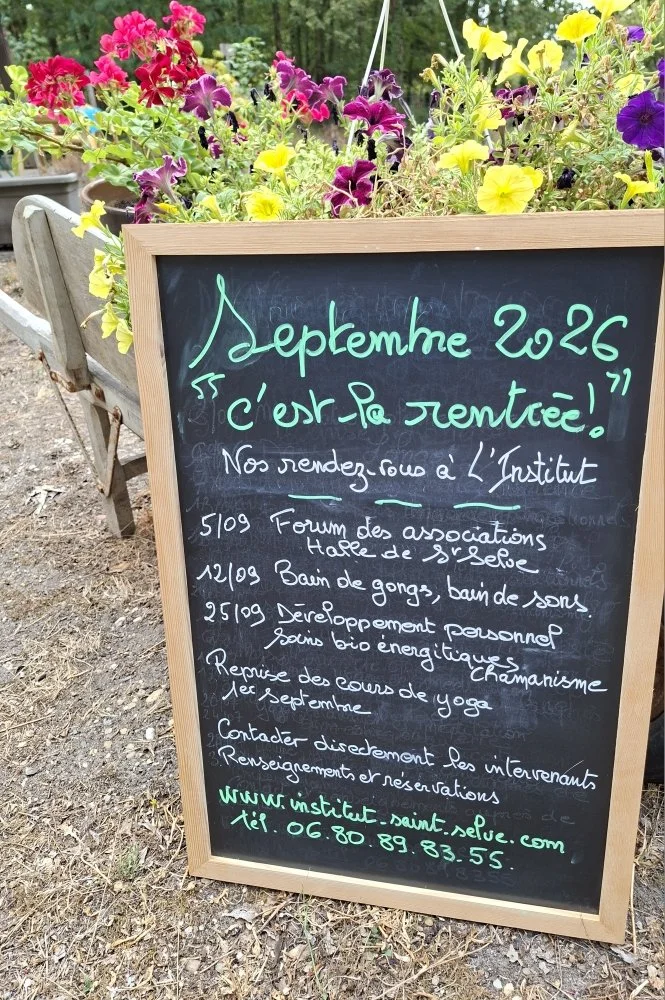 Septembre 2026
"c'est la rentrée!"
Nos rendez-vous à L'Institut
5/09 Forum des associations
Halle de St Selve
12/09 Bain de gongs, bain de sons.
25/09 Développement personnel
Soins bio énergétiques
Chamanisme
Reprise des cours de yoga
1er septembre
Contacter directement les intervenants
Renseignements et réservations
www.institut-saint-selve.com
tél. 06.80.89.83.55.